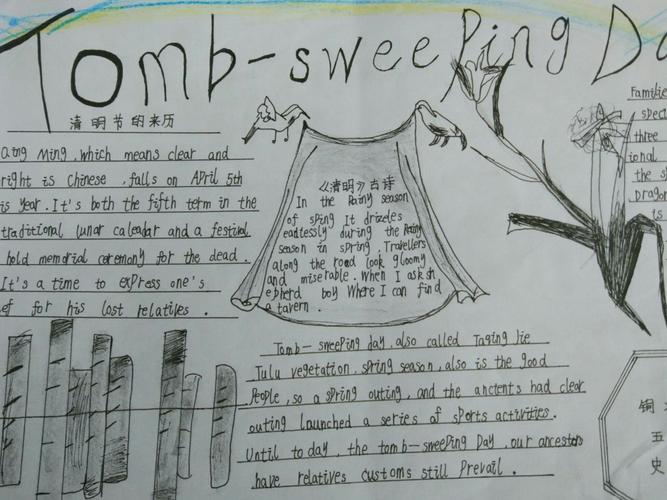 Tomb-sweeping Da
清明节的来历
Qing Ming, which means clear and
right is Chinese, falls on April 5th
is year. It's both the fifth term in the
traditional lunar caleadar and a festival
hold memorial ceremony for the dead.
It's a time to express one's
ef for his lost relatives.
《清明》古诗
In the Rainy season
of sping It drizeles
eadtessly during the Rainy
season in spring. Travellers
along the road look gloomy
and miserable. When I ask sh
epherd boy Where I can find
a tavern.
Tamb-sweeping day, also called Taging Jie
Tulu vegetation, spring season, also is the good
People, so a spring outing, and the ancients had clear
outing launched a series of sports activities.
Until today, the tomb-sweeping Day, our ancestors
have relatives customs still Prevail.
Familie
spect
three
ional
the s
Dragon
is
铜
五
史